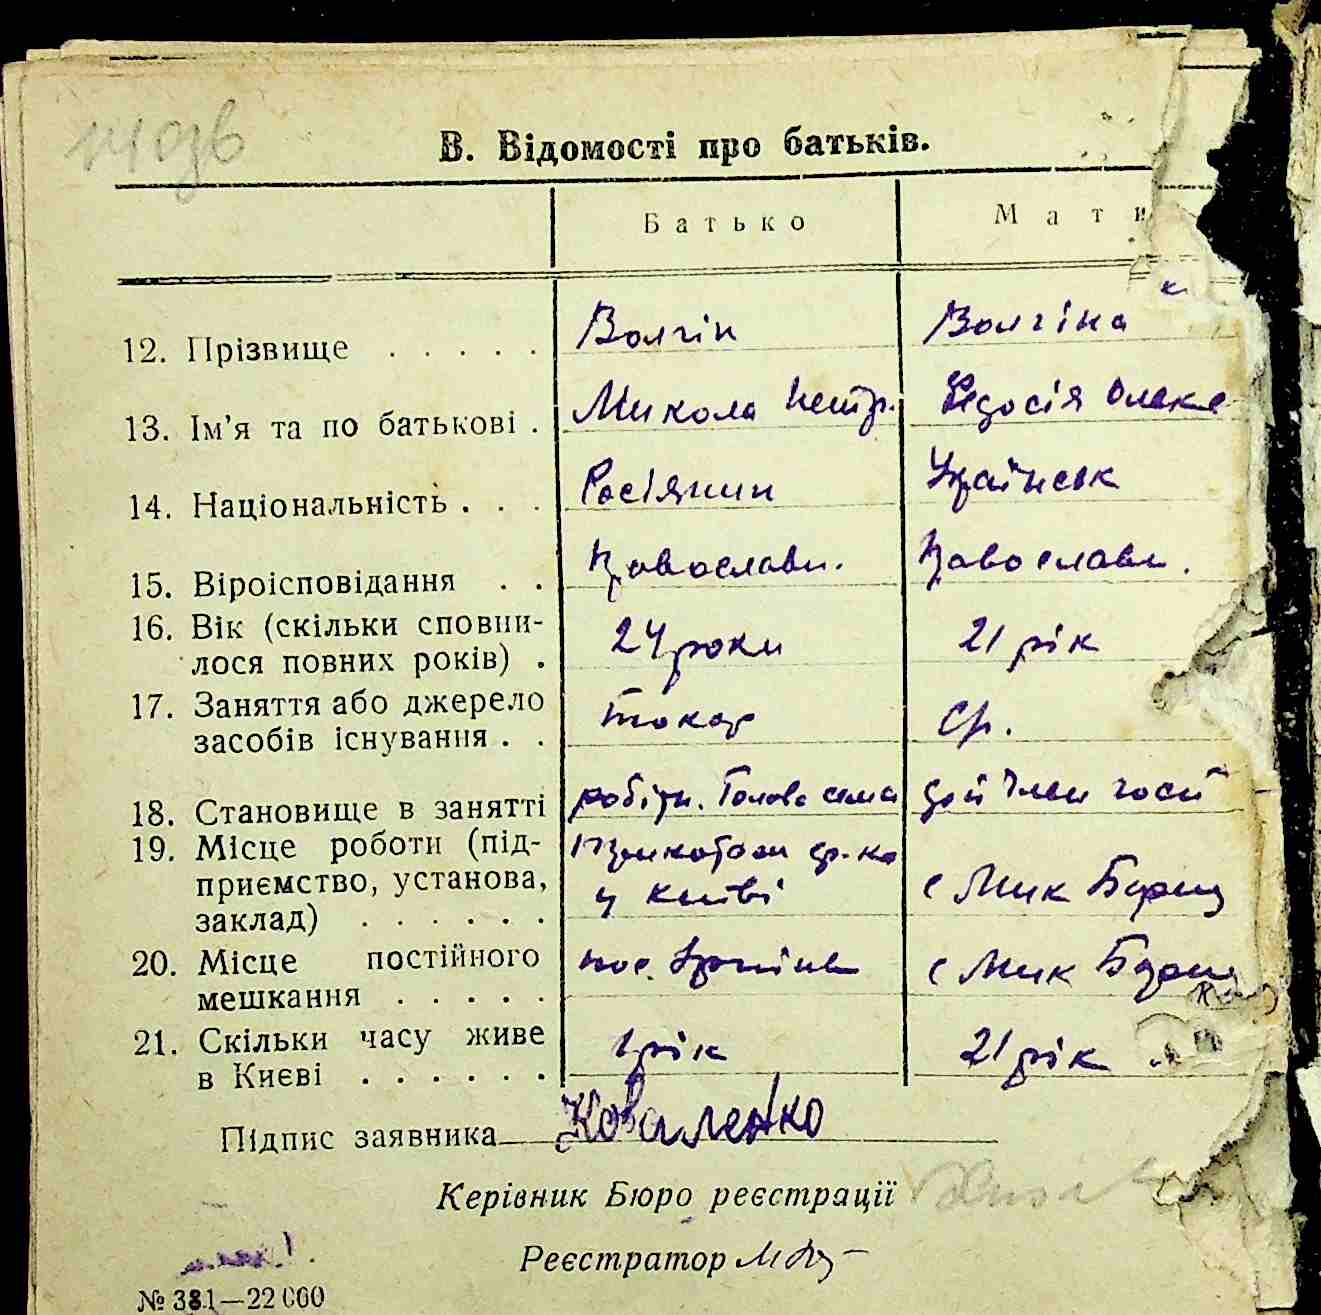 В. Відомості про батьків.
Батько Мати
12. Прізвище . . . . . Волгін Волгіна
13. Ім'я та по батькові . Микола Петр. Федосія Олекс
14. Національність . . . Росіянин Українськ
15. Віроісповідання . . Православн. Православн.
16. Вік (скільки сповни-
лося повних років) . 24 роки 21 рік
17. Заняття або джерело
засобів існування . . токар
18. Становище в занятті робітн. Голова член
19. Місце роботи (під-
приємство, установа, с Мик Борщ
заклад) . . . . . . у Києві
20. Місце постійного пос. Ірпінь с Мик Борщ
мешкання . . . . .
21. Скільки часу живе
в Києві . . . . . . 1 рік 21 рік
Підпис заявника Коваленко
Керівник Бюро реєстрації
Реєстратор
№ 381—22 000